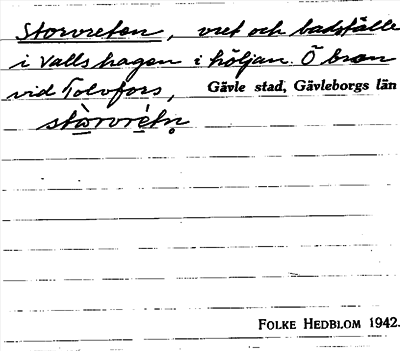 Storvreten, vret och badställe
i Vallshagen i höljan. Ö bron
vid Tolvfors, Gävle stad, Gävleborgs län
stòrvrétn̥
FOLKE HEDBLOM 1942.